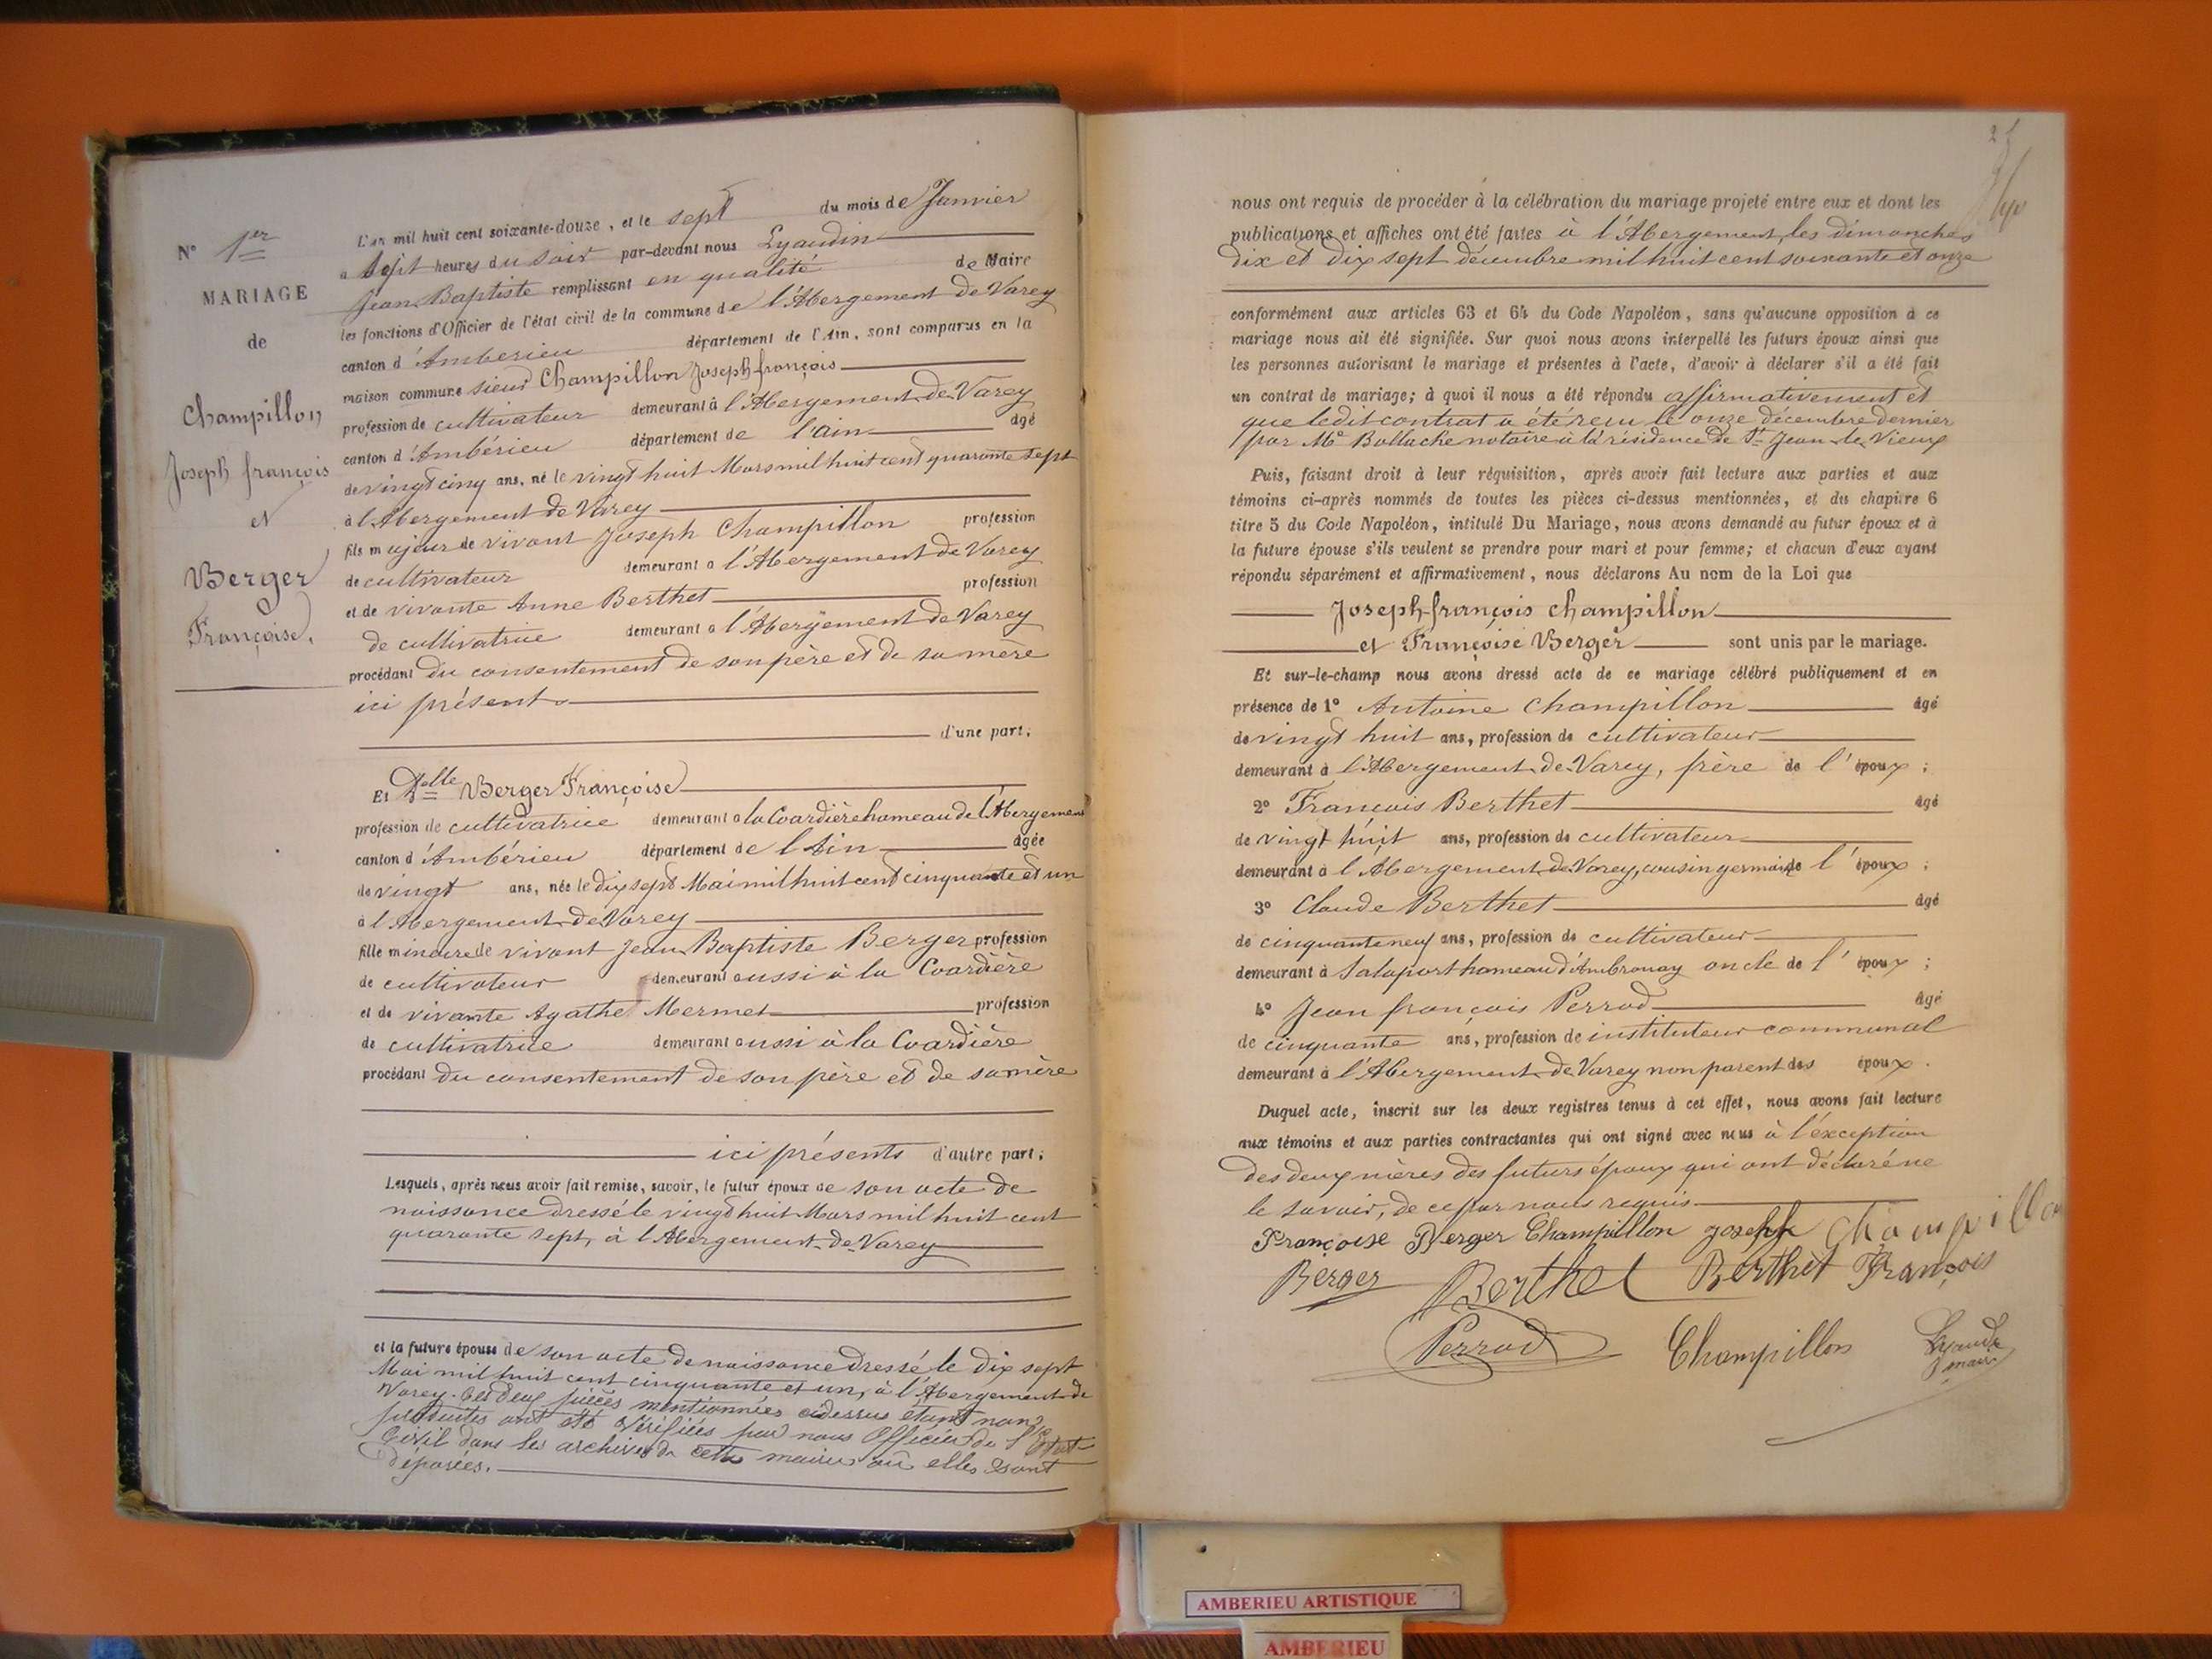 N° 1er
MARIAGE
de
Champillon
Joseph françois
et
Berger
Françoise.
L'an mil huit cent soixante-douze, et le sept du mois de Janvier
à sept heures du soir par-devant nous Lyaudin
Jean Baptiste remplissant en qualité de Maire
les fonctions d'Officier de l'état civil de la commune de l'Abergement de Varey
canton d'Ambérieu département de l'Ain, sont comparus en la
maison commune sieur Champillon Joseph françois
profession de cultivateur demeurant à l'Abergement de Varey
canton d'Ambérieu département de l'ain âgé
de vingt cinq ans, né le vingt huit Mars mil huit cent quarante sept
à l'Abergement de Varey
fils majeur de vivant Joseph Champillon profession
de cultivateur demeurant à l'Abergement de Varey
et de vivante Anne Berthet profession
de cultivatrice demeurant à l'Abergement de Varey
procédant du consentement de son père et de sa mère
ici présents
d'une part;
Et Delle Berger Françoise
profession de cultivatrice demeurant à la Coardière hameau de l'Abergement
canton d'Ambérieu département de l'Ain âgée
de vingt ans, née le dix sept Mai mil huit cent cinquante et un
à l'Abergement de Varey
fille mineure de vivant Jean Baptiste Berger profession
de cultivateur demeurant aussi à la Coardière
et de vivante Agathe Mermet profession
de cultivatrice demeurant aussi à la Coardière
procédant du consentement de son père et de sa mère
ici présents d'autre part;
Lesquels, après nous avoir fait remise, savoir, le futur époux de son acte de
naissance dressé le vingt huit Mars mil huit cent
quarante sept, à l'Abergement de Varey
et la future épouse de son acte de naissance dressé le dix sept
Mai mil huit cent cinquante et un, à l'Abergement de
Varey. Les deux pièces mentionnées cidessus étant non
produites ont été vérifiées par nous Officier de l'Etat
Civil dans les archives de cette mairie où elles sont
déposées.
nous ont requis de procéder à la célébration du mariage projeté entre eux et dont les
publications et affiches ont été faites à l'Abergement, les dimanches
dix et dix sept décembre mil huit cent soixante et onze
conformément aux articles 63 et 64 du Code Napoléon, sans qu'aucune opposition à ce
mariage nous ait été signifiée. Sur quoi nous avons interpellé les futurs époux ainsi que
les personnes autorisant le mariage et présentes à l'acte, d'avoir à déclarer s'il a été fait
un contrat de mariage; à quoi il nous a été répondu affirmativement et
que ledit contrat a été reçu le onze décembre dernier
par Me Bollache notaire à la résidence de St Jean le Vieux
Puis, faisant droit à leur réquisition, après avoir fait lecture aux parties et aux
témoins ci-après nommés de toutes les pièces ci-dessus mentionnées, et du chapitre 6
titre 5 du Code Napoléon, intitulé Du Mariage, nous avons demandé au futur époux et à
la future épouse s'ils veulent se prendre pour mari et pour femme; et chacun d'eux ayant
répondu séparément et affirmativement, nous déclarons Au nom de la Loi que
Joseph françois champillon
et Françoise Berger sont unis par le mariage.
Et sur-le-champ nous avons dressé acte de ce mariage célébré publiquement et en
présence de 1° Antoine Champillon âgé
de vingt huit ans, profession de cultivateur
demeurant à l'Abergement de Varey, frère de l'époux;
2° François Berthet âgé
de vingt huit ans, profession de cultivateur
demeurant à l'Abergement de Varey, cousin germain de l'époux;
3° Claude Berthet âgé
de cinquante neuf ans, profession de cultivateur
demeurant à Salaport hameau d'Ambronay oncle de l'époux;
4° Jean françois Perrod âgé
de cinquante ans, profession de instituteur communal
demeurant à l'Abergement de Varey non parent des époux.
Duquel acte, inscrit sur les deux registres tenus à cet effet, nous avons fait lecture
aux témoins et aux parties contractantes qui ont signé avec nous à l'exception
des deux mères des futurs époux qui ont déclaré ne
le savoir, de ce par nous requis
Françoise Berger Champillon joseph Champillon
Berger Berthet Berthet François
Perrod Champillon Lyaudin
maire
AMBERIEU ARTISTIQUE
AMBERIEU